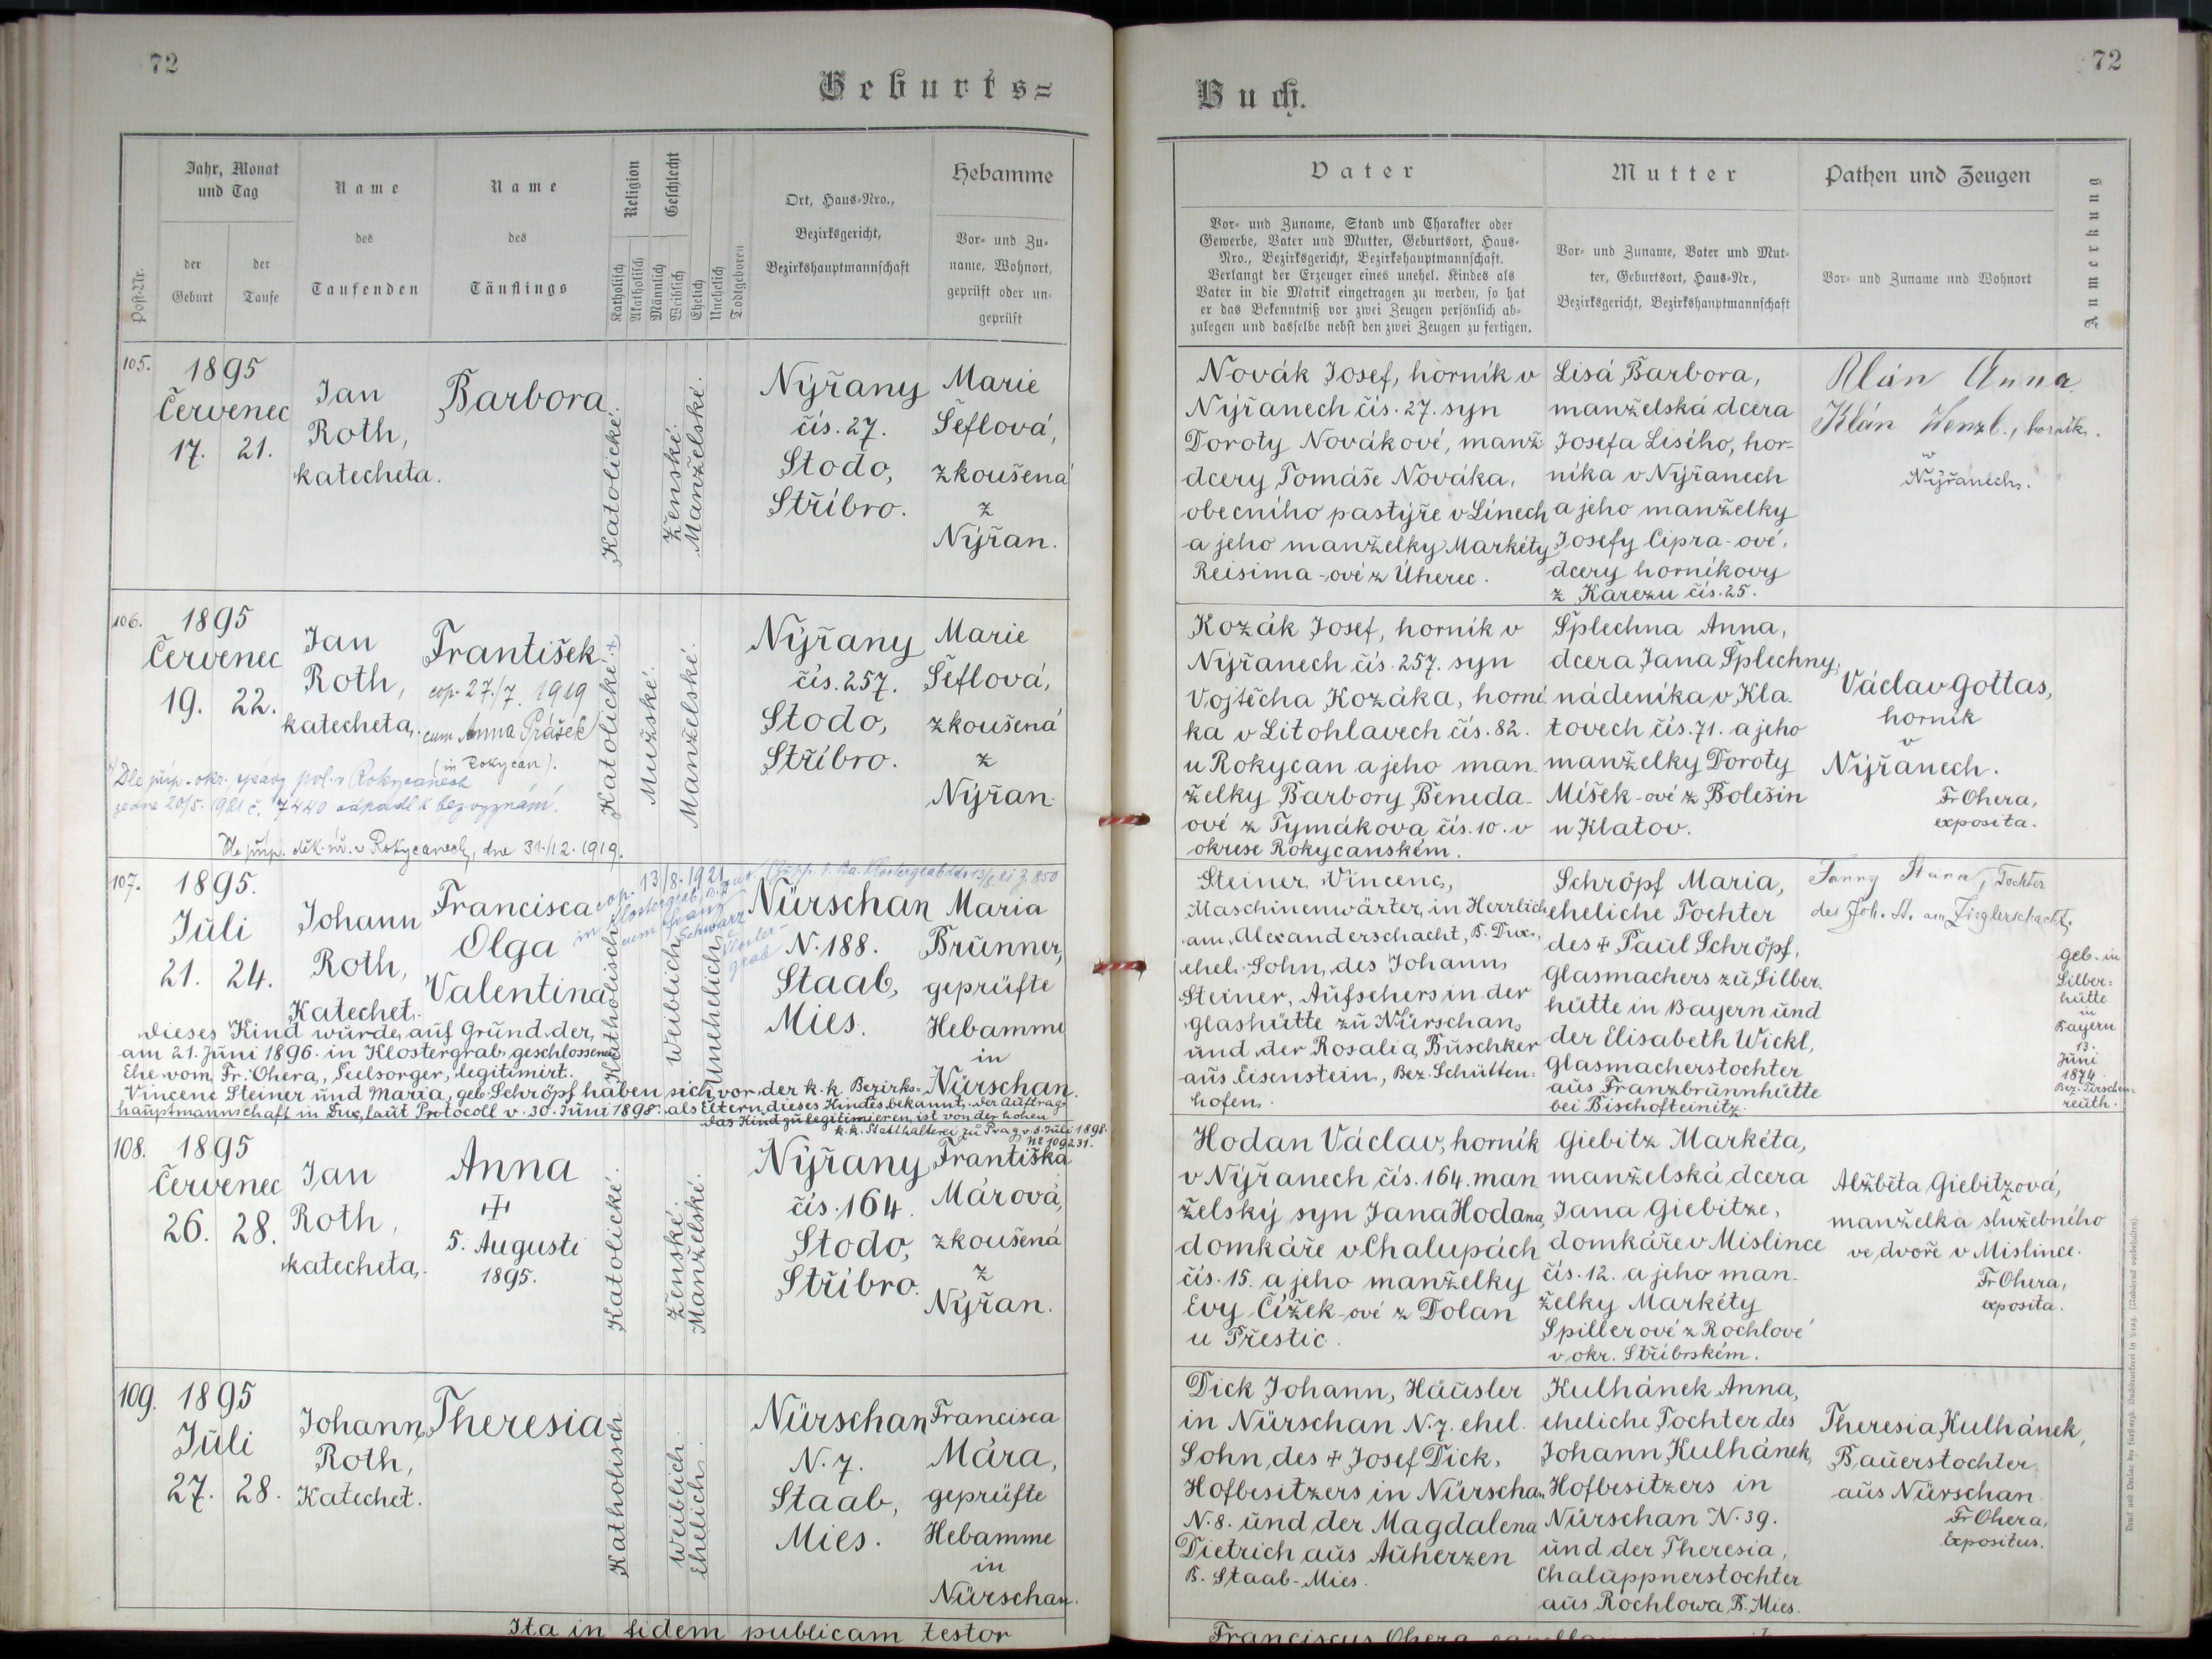 72
Geburts=
Jahr, Monat
und Tag
Post-Nr.
der
Geburt
der
Taufe
Name
des
Taufenden
Name
des
Täuflings
Religion
Katholisch
Akatholisch
Geschlecht
Männlich
Weiblich
Ehelich
Unehelich
Todtgeboren
Ort, Haus-Nro.,
Bezirksgericht,
Bezirkshauptmannschaft
Hebamme
Vor- und Zu-
name, Wohnort,
geprüft oder un-
geprüft
105.
1895
Červenec
17. 21.
Jan
Roth,
katecheta.
Barbora
Katolické.
Ženské.
Manželské.
Nýřany
čís. 27.
Stodo,
Stříbro.
Marie
Šeflová,
zkoušená
z
Nýřan.
106.
1895
Červenec
19. 22.
Jan
Roth,
katecheta.
František
cop. 27./7. 1919
cum Anna Prášek
(in Rokycan).
Katolické.+
Mužské.
Manželské.
Nýřany
čís. 257.
Stodo,
Stříbro.
Marie
Šeflová,
zkoušená
z
Nýřan.
Dle příp. okr. správy pol. v Rokycanech
ze dne 20/5. 1921 č. 7440 odpadl k bezvyznání.
Dle příp. děk. úř. v Rokycanech, dne 31./12. 1919.
107.
1895.
Juli
21. 24.
Johann
Roth,
Katechet.
Francisca
Olga
Valentina
cop. 13/8. 1921
in Klostergrab,
cum Franz
Schwarz
Klostergrab
Katholisch
Weiblich
Unehelich
Nürschan
N. 188.
Staab,
Mies.
Maria
Brunner,
geprüfte
Hebamme
in
Nürschan.
Dieses Kind wurde auf Grund der
am 21. Juni 1896. in Klostergrab geschlossenen
Ehe vom Fr. Ohera, Seelsorger, legitimirt.
Vincenc Steiner und Maria, geb. Schröpf haben sich vor der k. k. Bezirks-
hauptmannschaft in Dux, laut Protocoll v. 30. Juni 1898. als Eltern dieses Kindes bekannt, der Auftrag
das Kind zu legitimieren, ist von der hohen
k. k. Statthalterei zu Prag v. 8. Juli 1898.
No 109231.
108.
1895
Červenec
26. 28.
Jan
Roth,
katecheta.
Anna
5. Augusti
1895.
Katolické.
Ženské.
Manželské.
Nýřany
čís. 164.
Stodo,
Stříbro.
Františka
Márová,
zkoušená
z
Nýřan.
109.
1895
Juli
27. 28.
Johann
Roth,
Katechet.
Theresia
Katholisch.
Weiblich.
Ehelich.
Nürschan
N. 7.
Staab,
Mies.
Francisca
Mára,
geprüfte
Hebamme
in
Nürschan.
Ita in fidem publicam testor
72
Buch.
Vater
Vor- und Zuname, Stand und Charakter oder
Gewerbe, Vater und Mutter, Geburtsort, Haus-
Nro., Bezirksgericht, Bezirkshauptmannschaft.
Verlangt der Erzeuger eines unehel. Kindes als
Vater in die Matrik eingetragen zu werden, so hat
er das Bekenntniß vor zwei Zeugen persönlich ab-
zulegen und dasselbe nebst den zwei Zeugen zu fertigen.
Mutter
Vor- und Zuname, Vater und Mut-
ter, Geburtsort, Haus-Nr.,
Bezirksgericht, Bezirkshauptmannschaft
Pathen und Zeugen
Vor- und Zuname und Wohnort
Anmerkung
Novák Josef, horník v
Nýřanech čís. 27. syn
Doroty Novákové, manž.
dcery Tomáše Nováka,
obecního pastýře v Línech
a jeho manželky Markéty
Reisima-ové z Úherec.
Lisá Barbora,
manželská dcera
Josefa Lisého, hor-
níka v Nýřanech
a jeho manželky
Josefy Cipra-ové,
dcery horníkovy
z Karezu čís. 25.
Klán Anna
Klán Wenzl., horník.
v
Nýřanech.
Kozák Josef, horník v
Nýřanech čís. 257. syn
Vojtěcha Kozáka, horní-
ka v Litohlavech čís. 82.
u Rokycan a jeho man-
želky Barbory Beneda-
ové z Tymákova čís. 10. v
okrese Rokycanském.
Šplechna Anna,
dcera Jana Šplechny,
nádeníka v Kla-
tovech čís. 71. a jeho
manželky Doroty
Míšek-ové z Bolešin
u Klatov.
Václav Gottas,
horník
v
Nýřanech.
Fr Ohera,
exposita.
Steiner Vincenc,
Maschinenwärter, in Herrlich
am Alexanderschacht, B. Dux.,
ehel. Sohn, des Johann
Steiner, Aufsehers in der
Glashütte zu Nürschan,
und der Rosalia Buschker
aus Eisenstein, Bez. Schütten-
hofen.
Schröpf Maria,
eheliche Tochter
des + Paul Schröpf,
Glasmachers zu Silber-
hütte in Bayern und
der Elisabeth Wickl,
Glasmacherstochter
aus Franzbrunnhütte
bei Bischofteinitz.
Tochter
des Joh. St. am Zieglerschacht.
geb. in
Silber-
hütte
in
Bayern
13.
Juni
1874
Bez. Tirschen-
reuth.
Hodan Václav, horník
v Nýřanech čís. 164. man-
želský syn Jana Hodana,
domkáře v Chalupách
čís. 15. a jeho manželky
Evy Čížek-ové z Dolan
u Přestic.
Giebitz Markéta,
manželská dcera
Jana Giebitze,
domkáře v Mislince
čís. 12. a jeho man-
želky Markéty
Spillerové z Rochlové
v okr. Stříbrském.
Alžběta Giebitzová,
manželka služebného
ve dvoře v Mislince.
Fr Ohera,
exposita.
Dick Johann, Häusler
in Nürschan N. 7. ehel.
Sohn, des + Josef Dick,
Hofbesitzers in Nürschan
N. 8. und der Magdalena
Dietrich aus Auherzen
B. Staab-Mies.
Kulhánek Anna,
eheliche Tochter des
Johann Kulhánek,
Hofbesitzers in
Nürschan N. 39.
und der Theresia,
Chaluppnerstochter
aus Rochlowa, B. Mies.
Theresia Kulhánek,
Bauerstochter
aus Nürschan.
Fr Ohera,
Expositus.
Franciscus Ohera